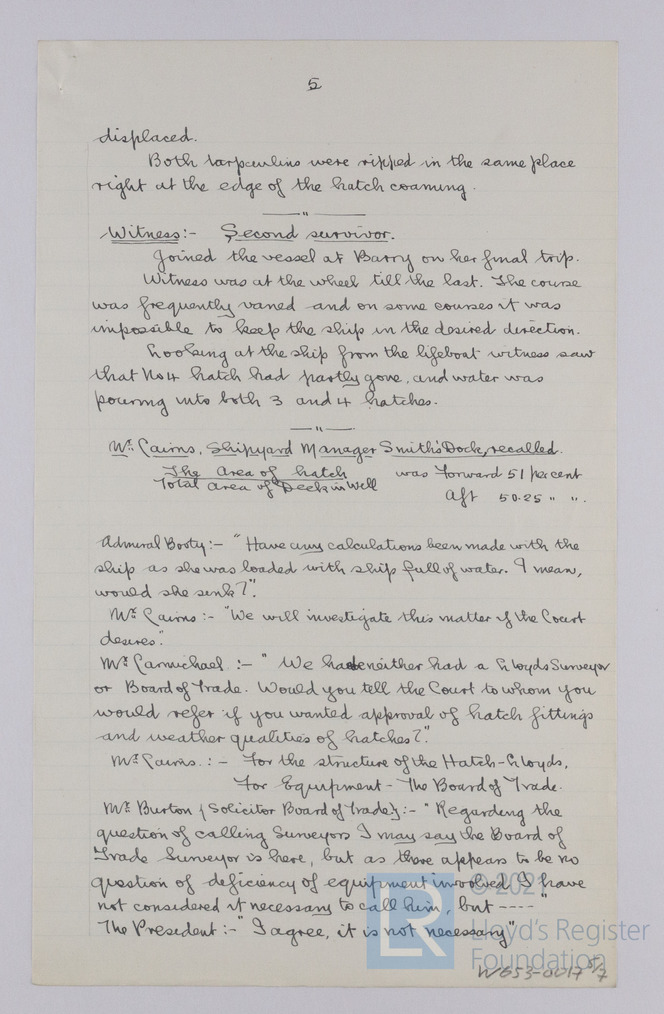 5
displaced.
Both tarpaulins were ripped in the same place
right at the edge of the hatch coaming.
Witness:- Second survivor.
Joined the vessel at Barry on her final trip.
Witness was at the wheel till the last. The course
was frequently varied and on some courses it was
impossible to keep the ship in the desired direction.
Looking at the ship from the lifeboat witness saw
that No 4 hatch had partly gone, and water was
pouring into both 3 and 4 hatches.
Mr. Cairns, Shipyard Manager Smith's Dock, recalled.
The Area of hatch was Forward 51 per cent
Total area of Deck in Well
Aft 50.25 " ".
Admiral Booty:- "Have any calculations been made with the
ship as she was loaded with ship full of water. I mean,
would she sink?".
Mr. Cairns:- "We will investigate this matter if the Court
desires".
Mr. Carmichael:- "We have neither had a Lloyds Surveyor
or Board of Trade. Would you tell the Court to whom you
would refer if you wanted approval of hatch fittings
and weather qualities of hatches?".
Mr. Cairns.:- For the structure of the Hatch - Lloyds,
For Equipment - The Board of Trade.
Mr. Burton (Solicitor Board of Trade):- "Regarding the
question of calling Surveyors I may say the Board of
Trade Surveyor is here, but as there appears to be no
question of deficiency of equipment involved I have
not considered it necessary to call him, but ----"
The President:- "I agree, it is not necessary"
© 2021
LR
Lloyd's Register
Foundation
W653-0017 5/7